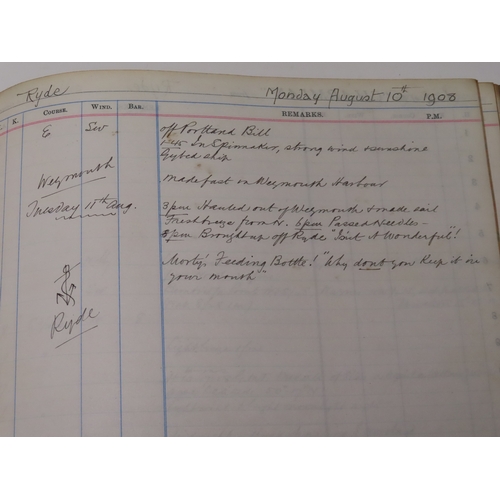 Ryde Monday August 10th 1908
K. COURSE. WIND. BAR. REMARKS. P.M.
E SW off Portland Bill
In Spinnaker, strong wind & sunshine
Gybed ship
Weymouth Made fast in Weymouth Harbour
Tuesday 11th Aug. 3pm Hauled out of Weymouth & made sail
Fresh breeze from W. 6pm Passed Needles -
8pm Brought up off Ryde "Isn't it Wonderful"!
Morty's Feeding Bottle! "Why dont you keep it in
your mouth"
Ryde